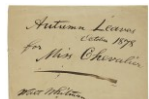 Autumn Leaves
Octbr 1878
for
Miss Chevalier
Walt Whitman